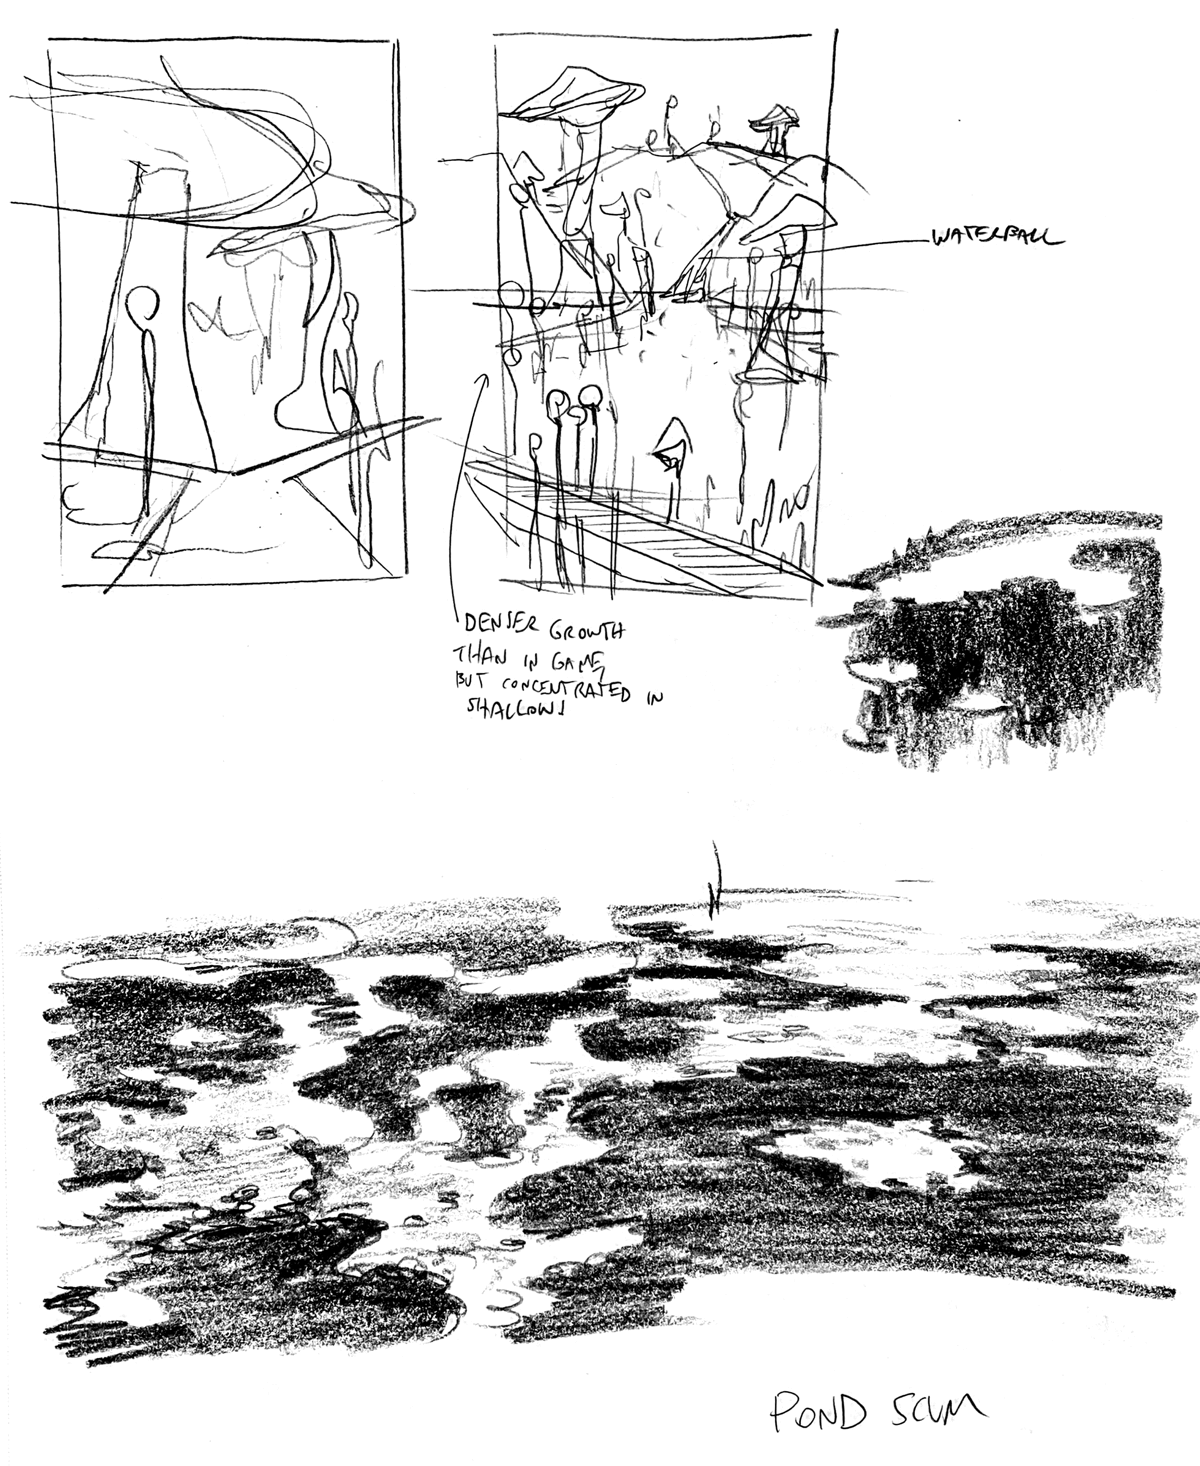 WATERFALL
DENSER GROWTH
THAN IN GAME,
BUT CONCENTRATED IN
SHALLOWS
POND SCUM